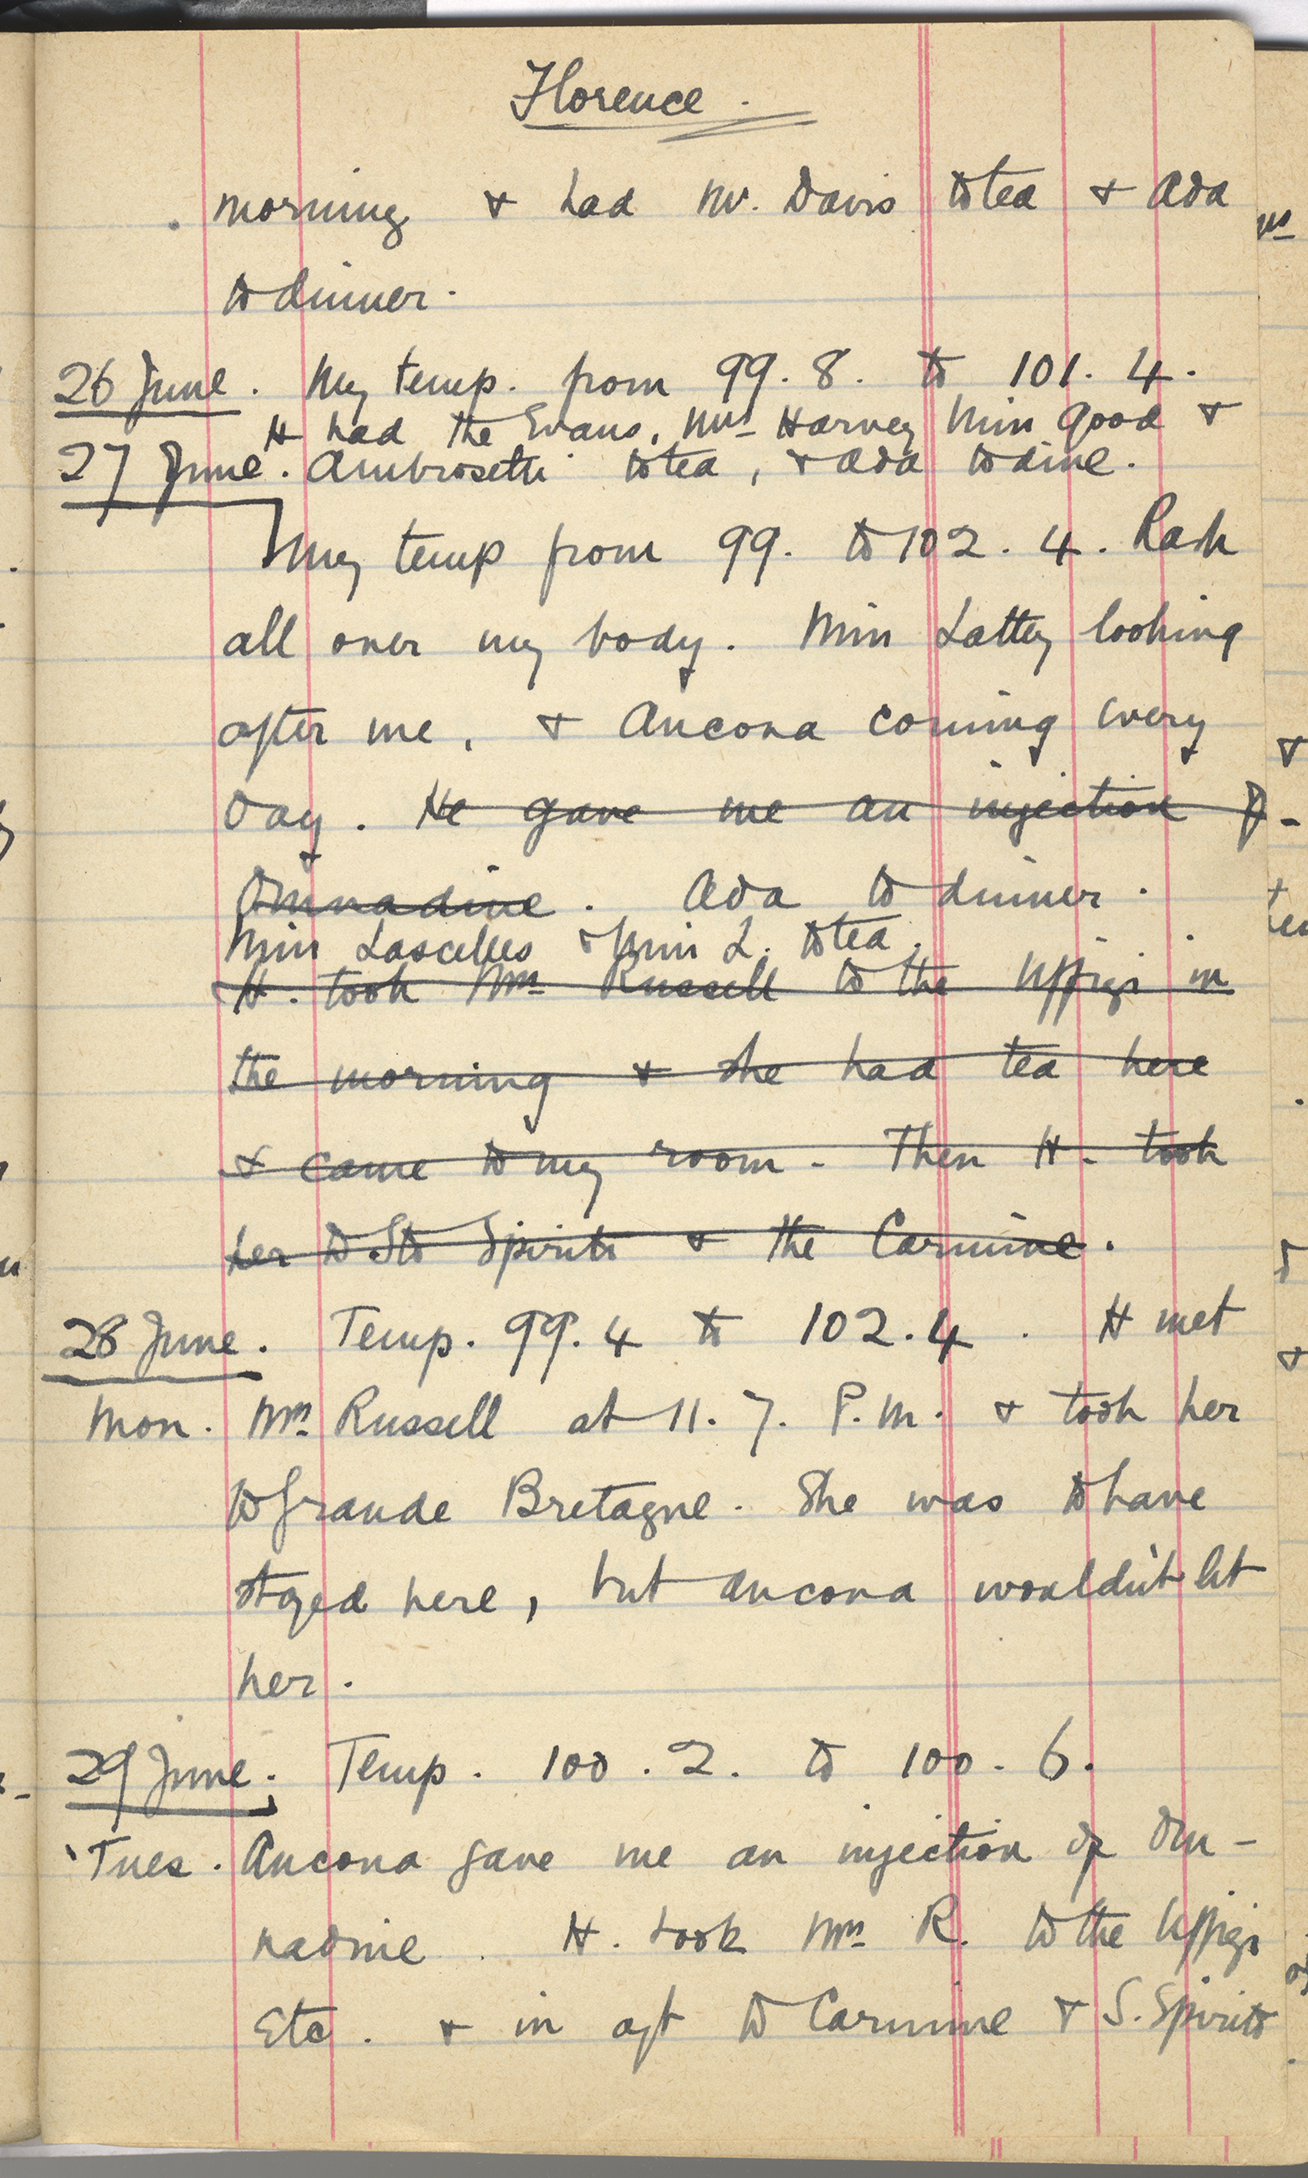 Florence.
morning & had Mr. Davis to tea & Ada
to dinner.
26 June. My temp. from 99.8. to 101.4.
H had the Evans, Mrs Harvey Miss Good &
27 June. Ambrosetti to tea, & Ada to dine.
My temp from 99. to 102.4. Rash
all over my body. Miss Lattey looking
after me, & Ancona coming every
day. He gave me an injection of
Omnadine. Ada to dinner.
Miss Lascelles & Miss L. to tea.
H. took Mrs Russell to the Uffizi in
the morning & she had tea here
& came to my room - Then H. took
her to Sto Spirito & the Carmine.
28 June. Temp. 99.4 to 102.4. H met
Mon. Mrs Russell at 11.7. P.m. & took her
to Grande Bretagne. She was to have
stayed here, but Ancona wouldn't let
her.
29 June. Temp. 100.2. to 100.6.
Tues. Ancona gave me an injection of Om-
nadine. H. took Mrs R. to the Uffizi
Etc. & in aft to Carmine & S. Spirito